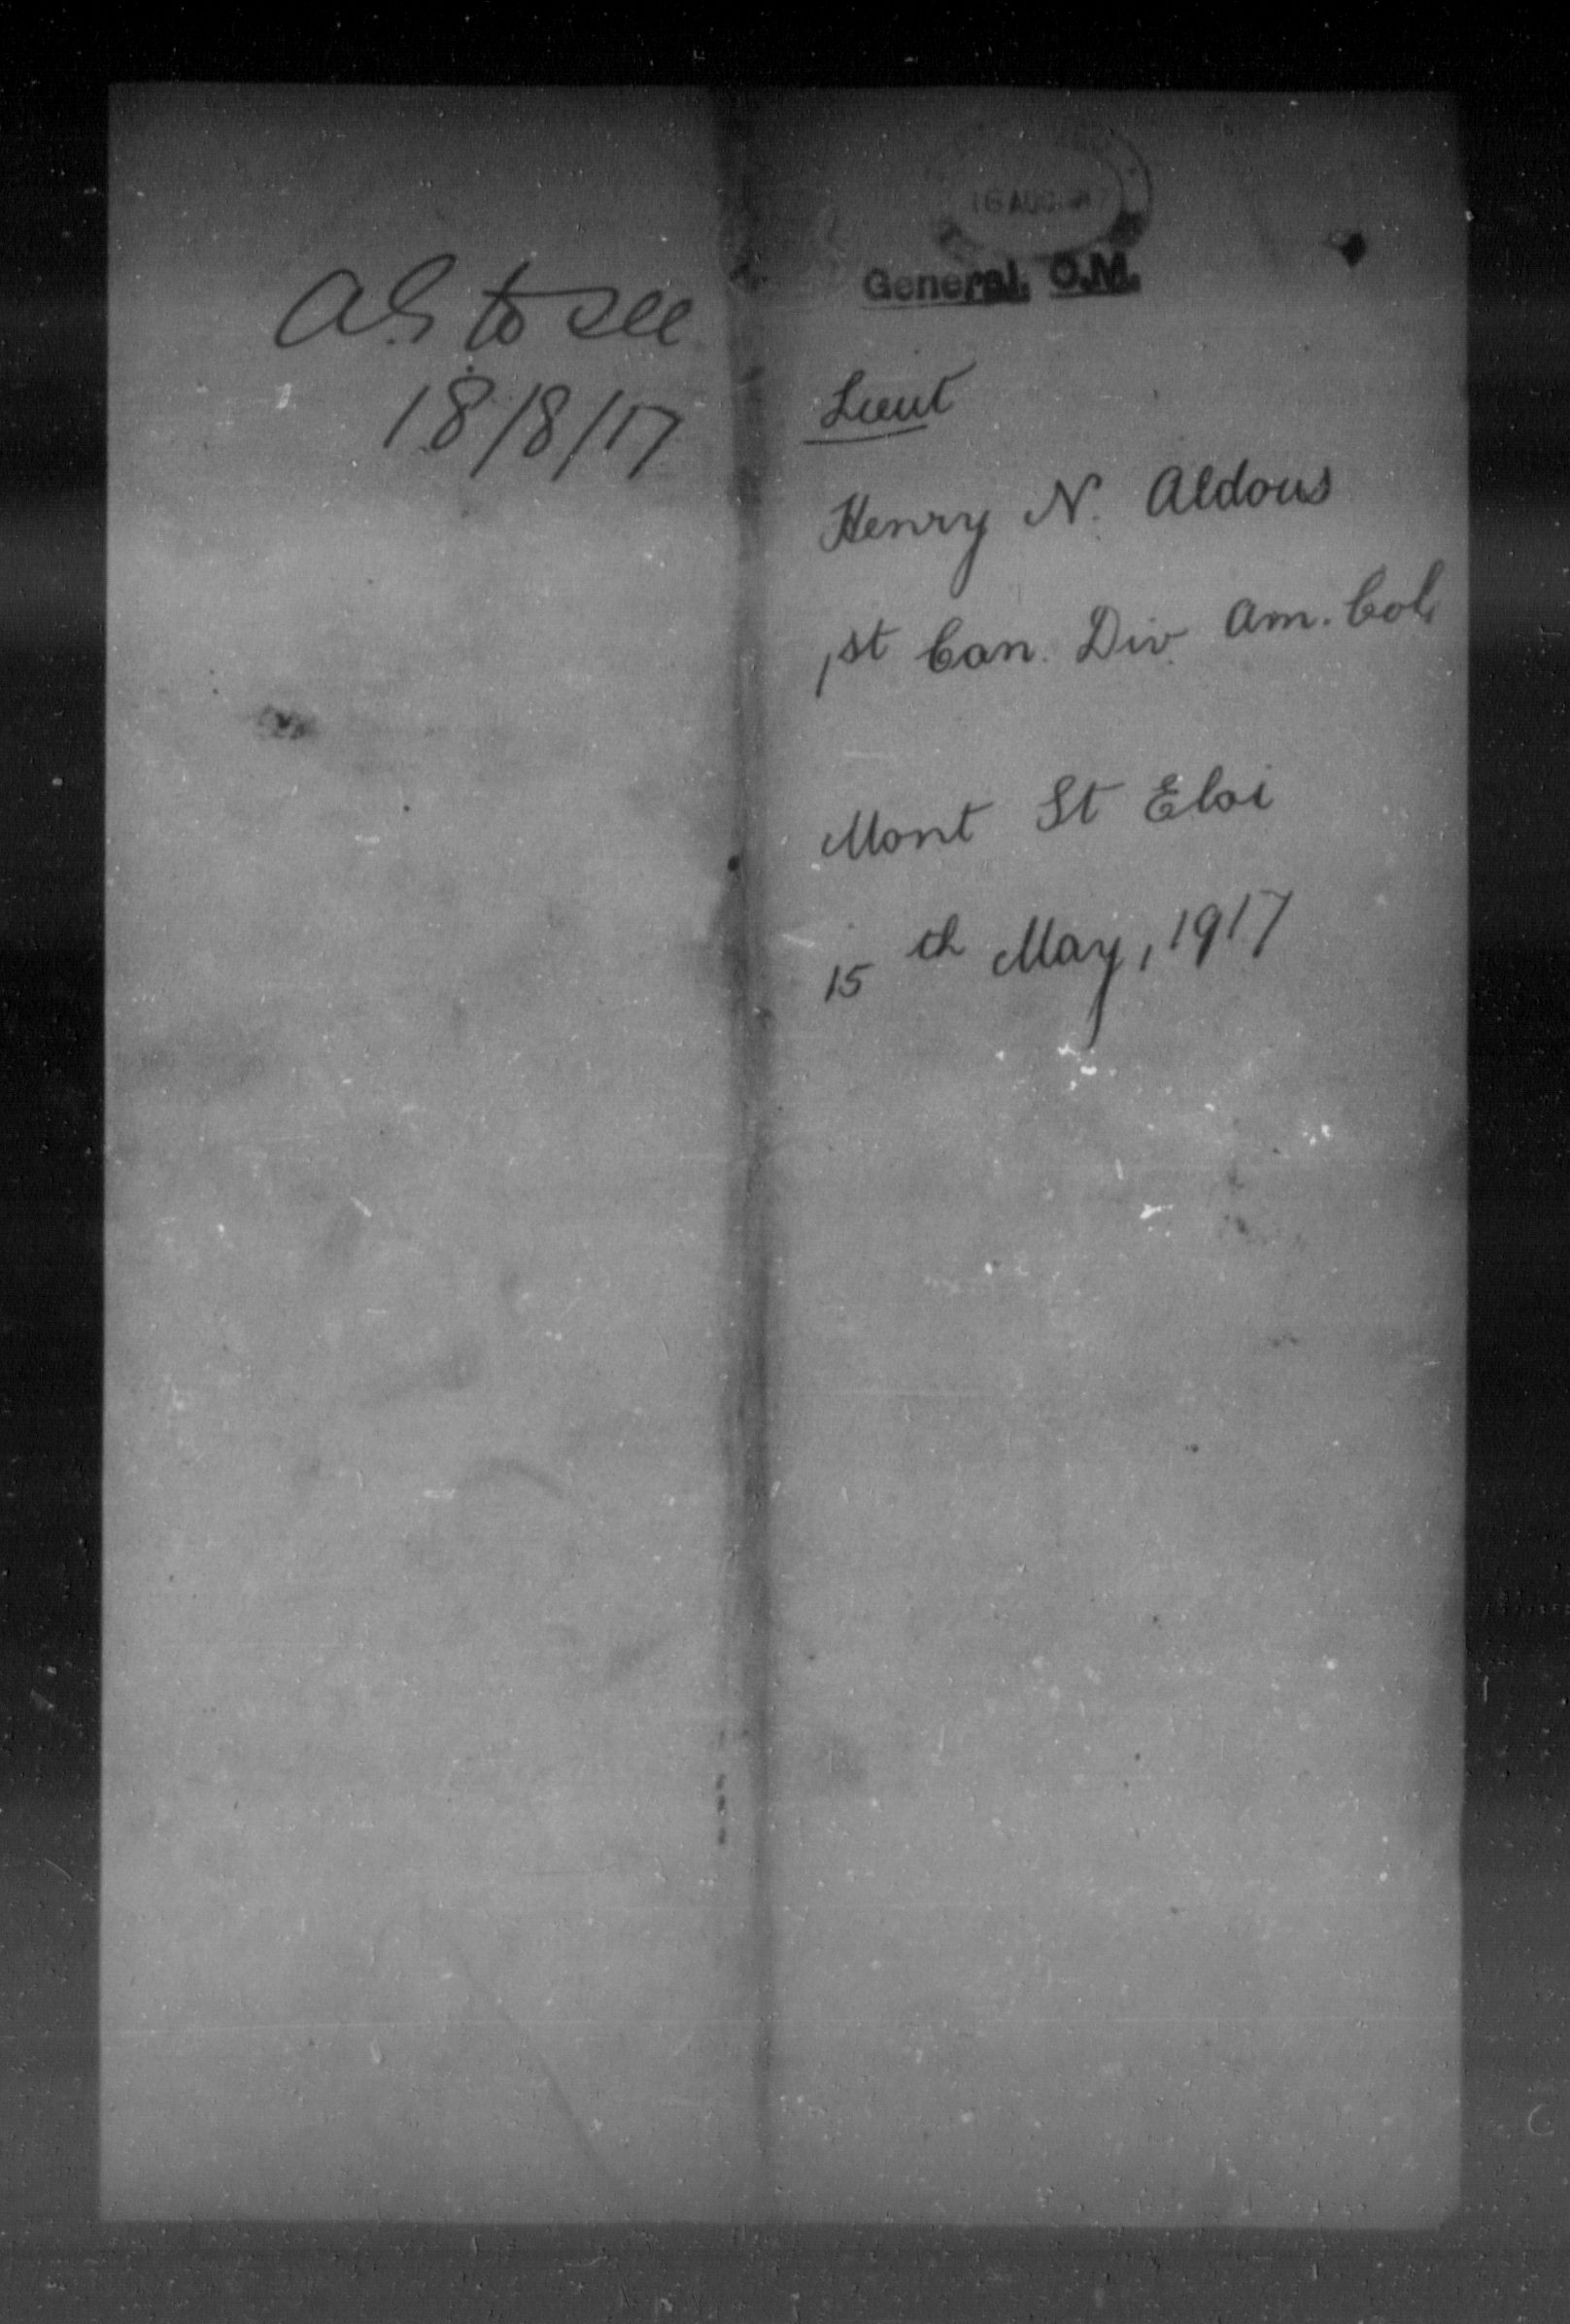 A.G to see
18/8/17
16 AUG
General. C.M.
Lieut
Henry N. Aldous
1st Can. Div. Am. Col.
Mont St Eloi
15th May, 1917